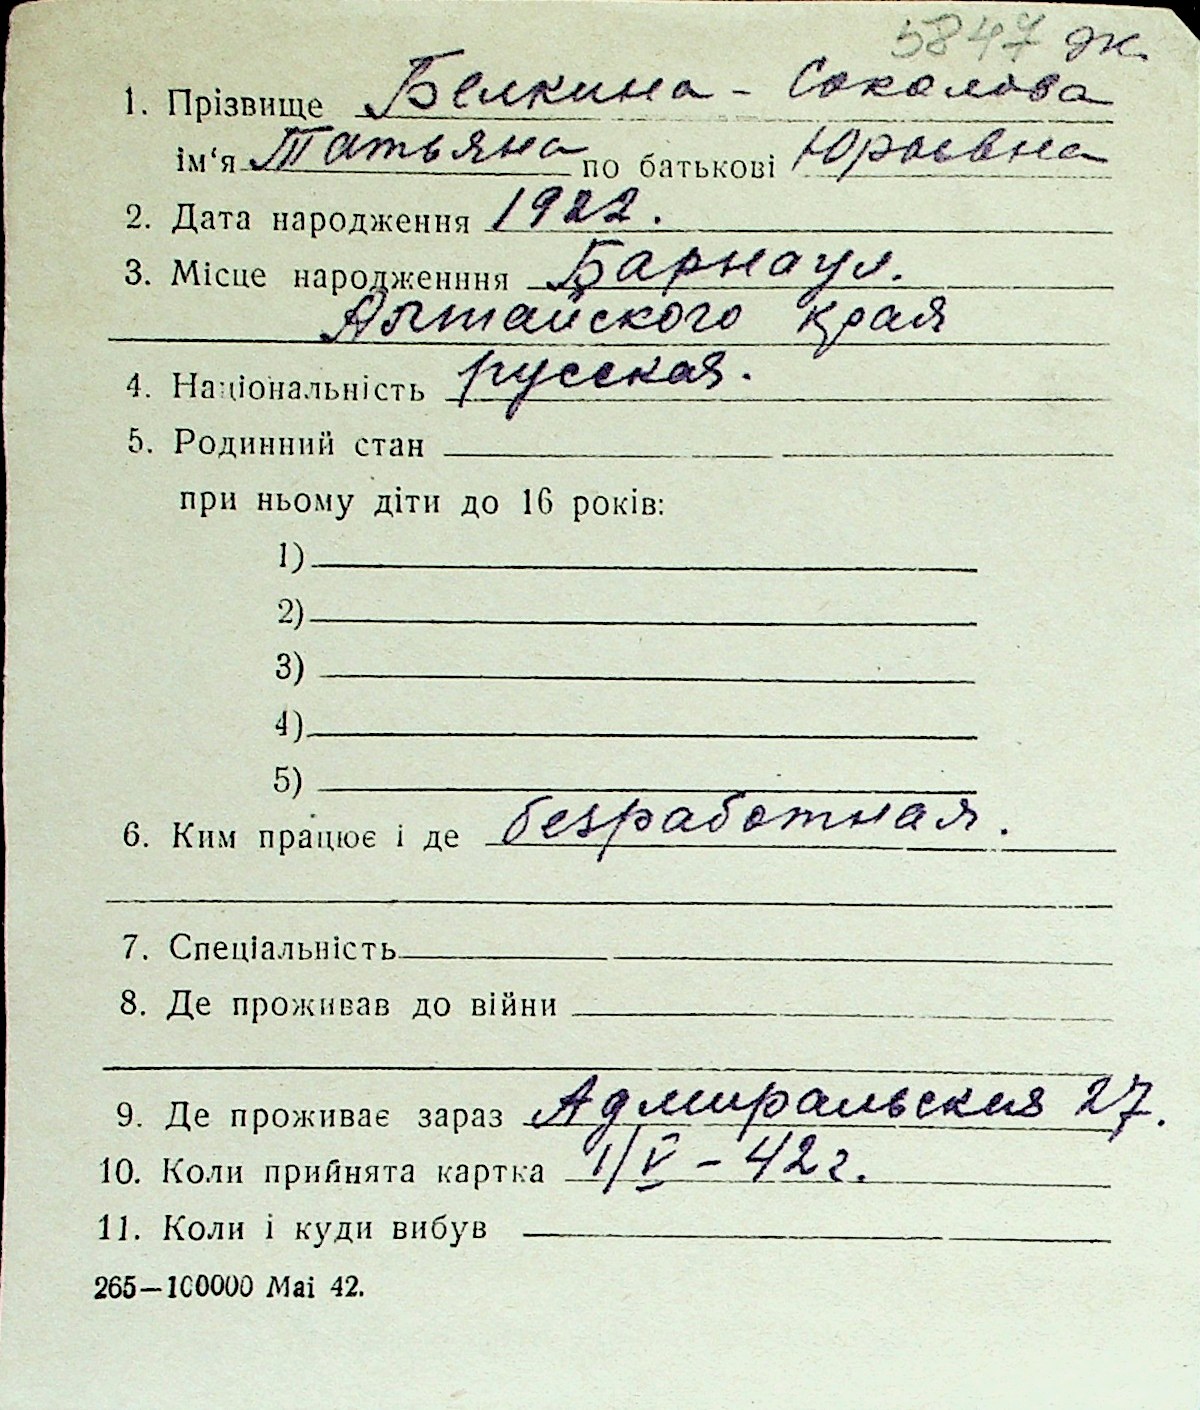 5847 эк.
1. Прізвище Белкина - Соколова
ім‘я Татьяна по батькові Юрьевна
2. Дата народження 1922.
3. Місце народженння Барнаул.
Алтайского края
4. Національність русская.
5. Родинний стан
при ньому діти до 16 років:
1)
2)
3)
4)
5)
6. Ким працює і де безработная.
7. Спеціальність
8. Де проживав до війни
9. Де проживає зараз Адмиральская 27.
10. Коли прийнята картка 1/V – 42 г.
11. Коли і куди вибув
265—100000 Mai 42.